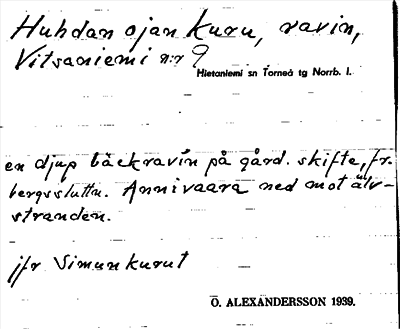 Huhdan ojan kuru, ravin,
Vitsaniemi n:r 9
Hietaniemi sn Torneå tg Norrb. l.
en djup bäckravin på gård. skifte, fr.
bergssluttn. Annivaara ned mot älv-
stranden.
jfr Simunkurut
O. ALEXANDERSSON 1939.